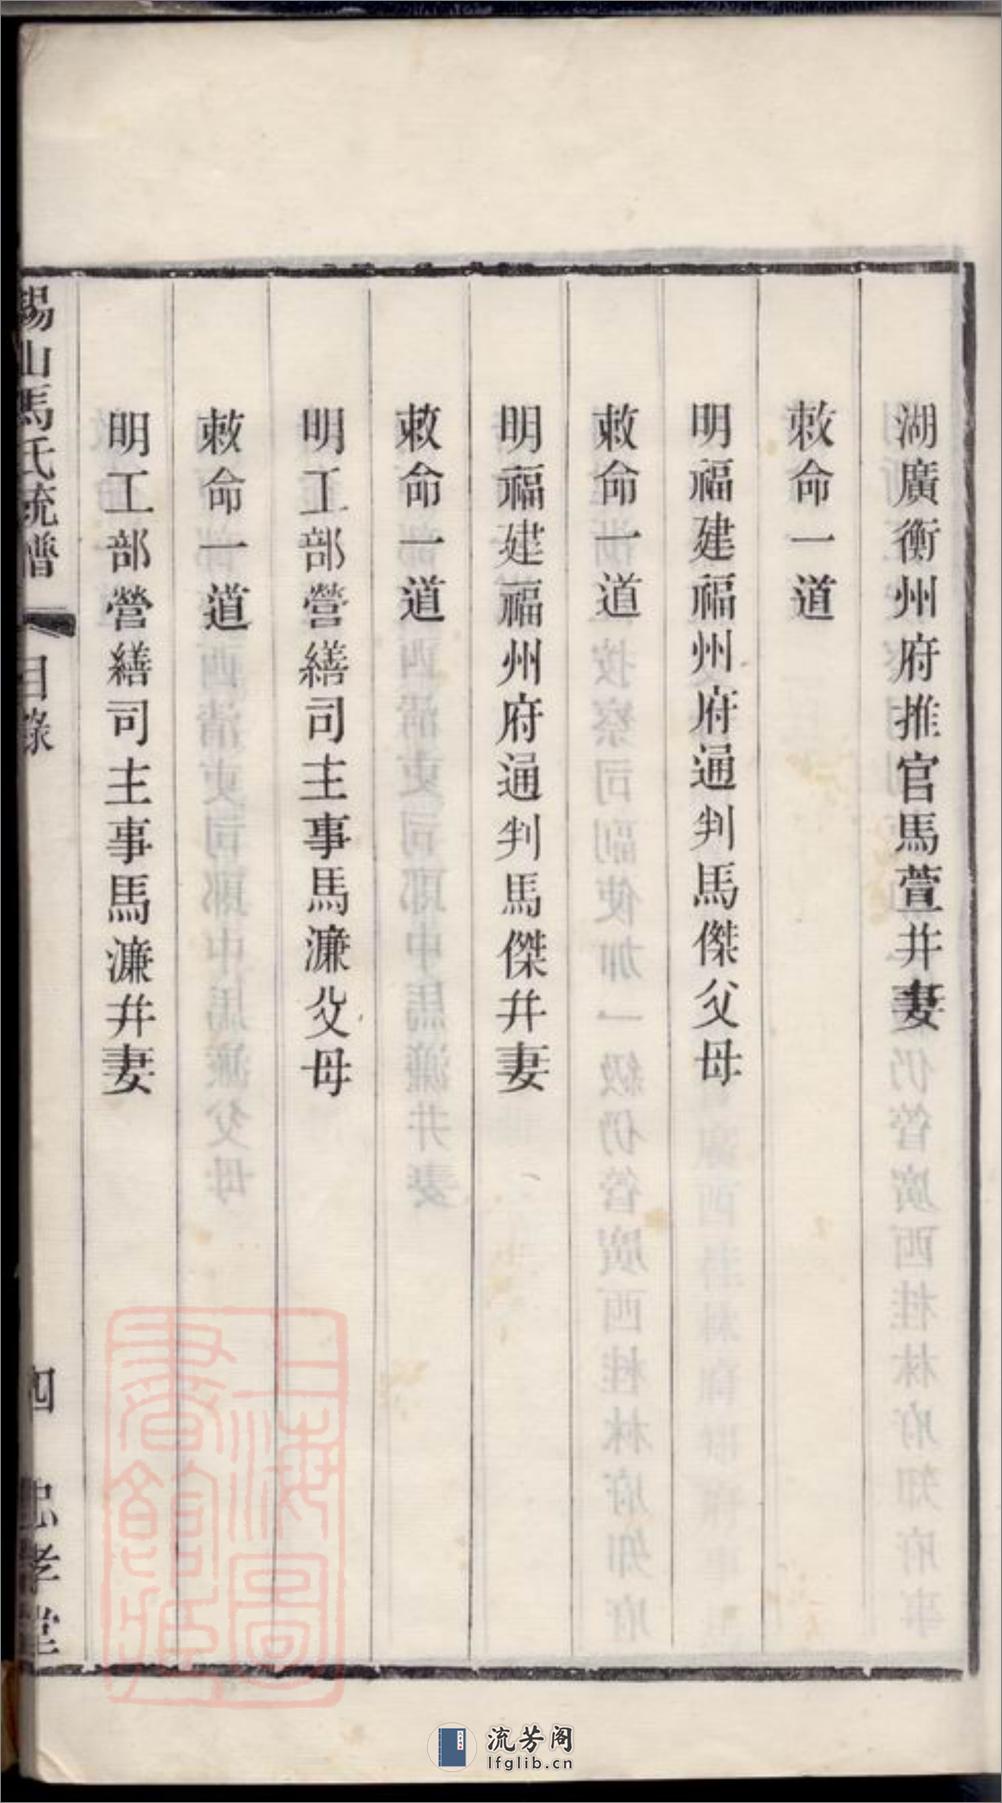 湖廣衡州府推官馬萱并妻
敕命一道
明福建福州府通判馬傑父母
敕命一道
明福建福州府通判馬傑并妻
敕命一道
明工部營繕司主事馬濂父母
敕命一道
明工部營繕司主事馬濂并妻
錫山馬氏統譜 目錄 四 忠孝堂
上海圖書館藏
流芳阁
lfglib.cn